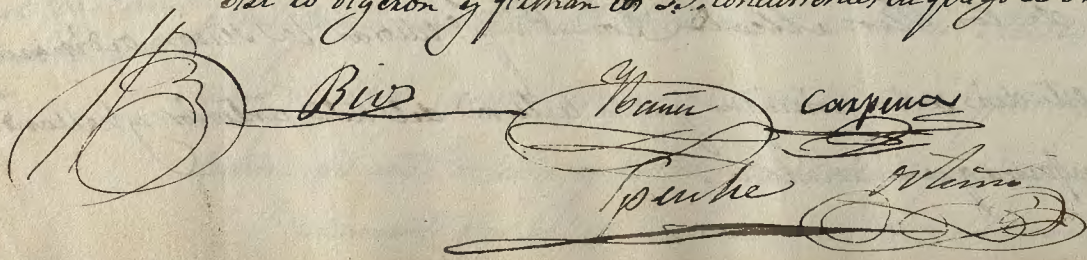 Asi lo digeron y firman los S.S. concurrentes de que yo el
Rios Ibañez Carpena
Puche Ortuño